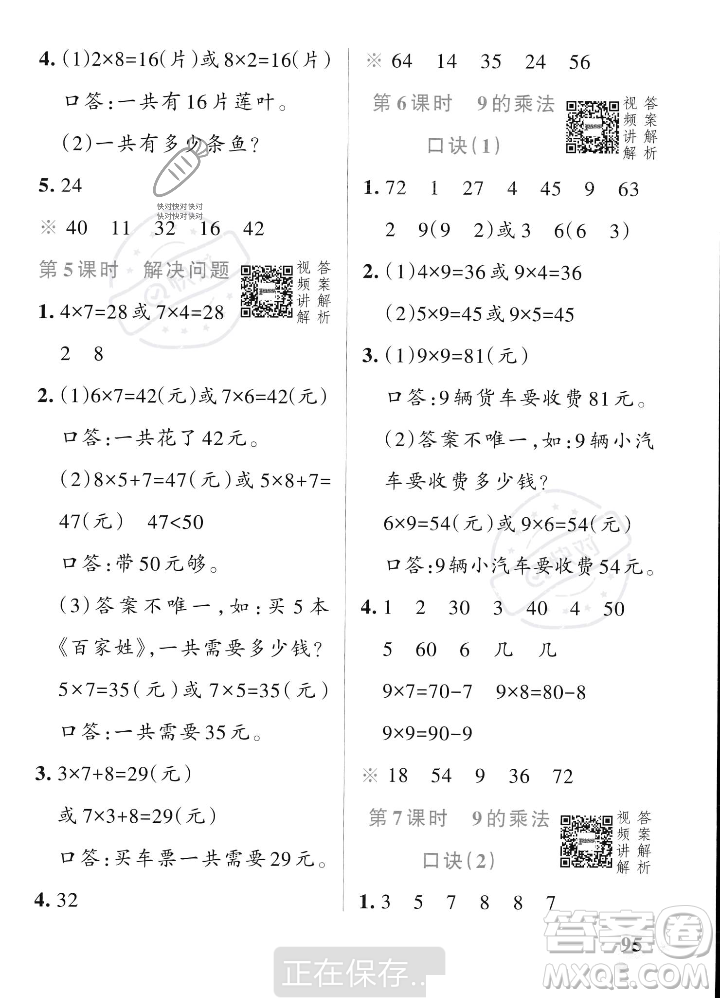 4.(1)2×8=16(片)或8×2=16(片)
口答:一共有16片莲叶。
(2)一共有多少条鱼?
5.24
※ 40 11 32 16 42
第5课时 解决问题
视频讲解
答案解析
1.4×7=28或7×4=28
2 8
2.(1)6×7=42(元)或7×6=42(元)
口答:一共花了42元。
(2)8×5+7=47(元)或5×8+7=
47(元) 47<50
口答:带50元够。
(3)答案不唯一,如:买5本
《百家姓》,一共需要多少钱?
5×7=35(元)或7×5=35(元)
口答:一共需要35元。
3.3×7+8=29(元)
或7×3+8=29(元)
口答:买车票一共需要29元。
4.32
※ 64 14 35 24 56
第6课时 9的乘法
口诀(1)
视频讲解
答案解析
1.72 1 27 4 45 9 63
2 9(3 6)或3 6(6 3)
2.(1)4×9=36或9×4=36
(2)5×9=45或9×5=45
3.(1)9×9=81(元)
口答:9辆货车要收费81元。
(2)答案不唯一,如:9辆小汽
车要收费多少钱?
6×9=54(元)或9×6=54(元)
口答:9辆小汽车要收费54元。
4.1 2 30 3 4 50
5 60 6 几 几
9×7=70-7 9×8=80-8
9×9=90-9
※ 18 54 9 36 72
第7课时 9的乘法
口诀(2)
视频讲解
答案解析
1.3 5 7 8 8 7
95
正在保存..
快对快对快对
快对快对快对
快对
快对
答案圈
MXQE.COM